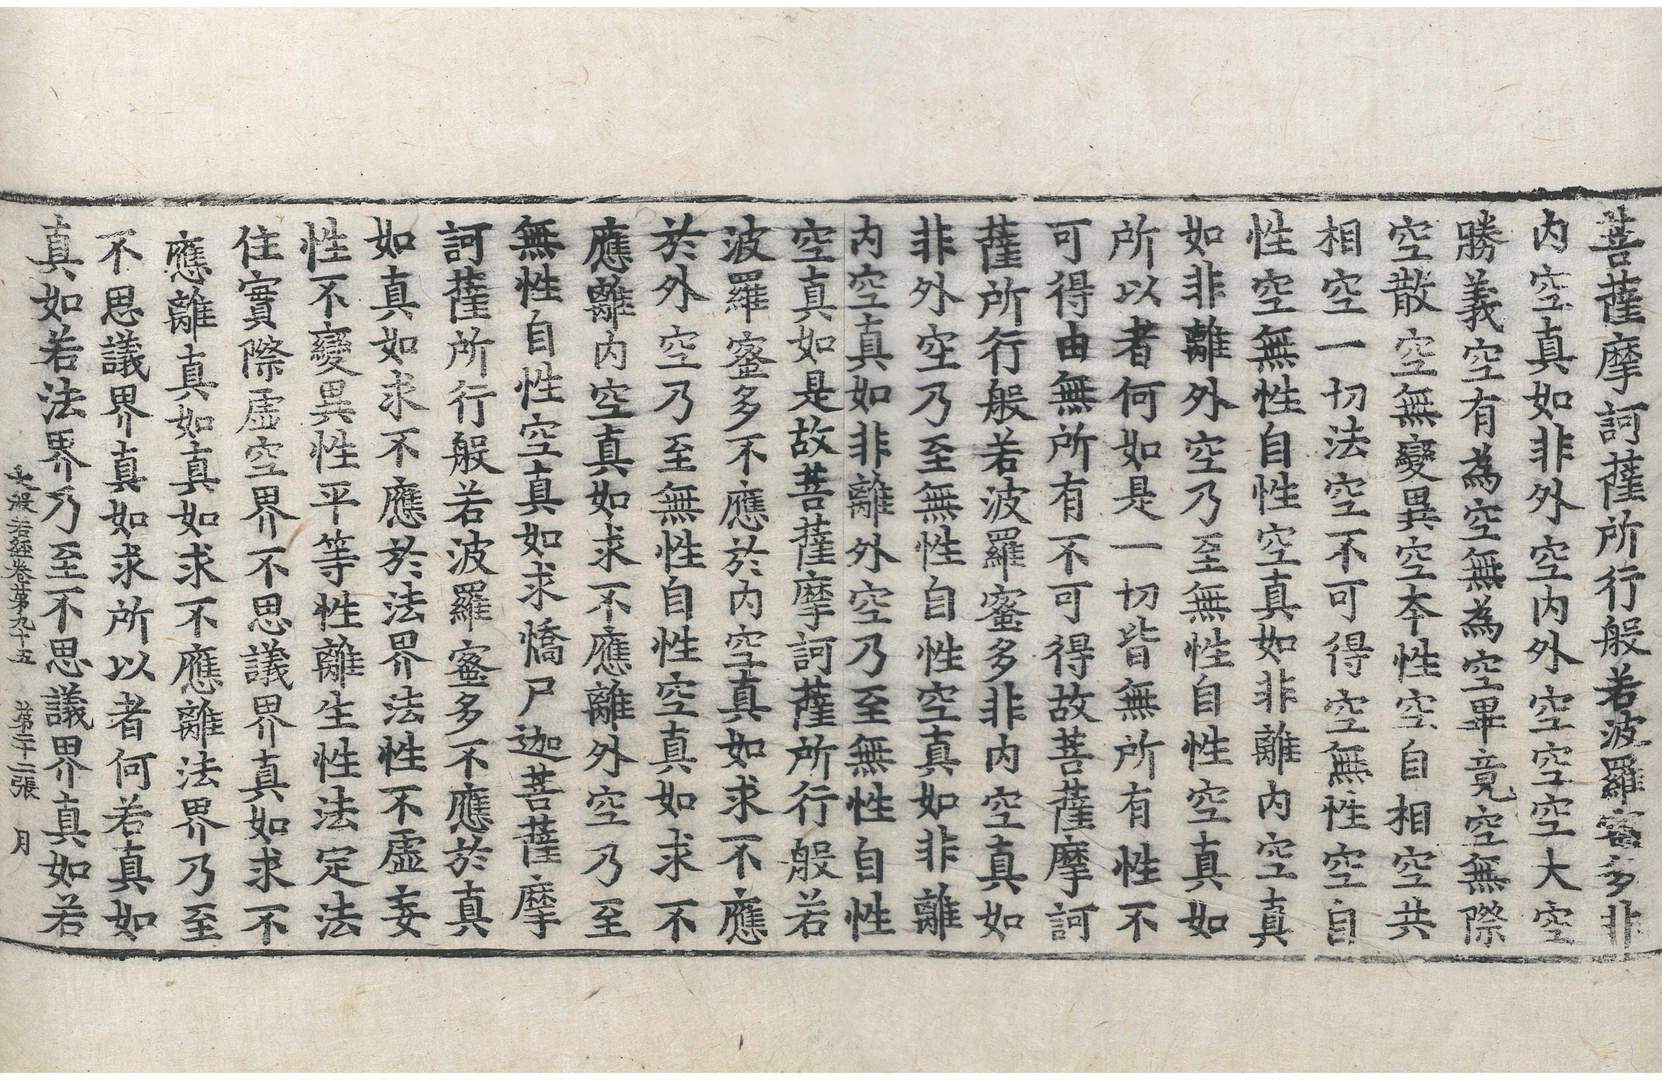 菩薩摩訶薩所行般若波羅蜜多非
内空真如非外空内外空空空大空
勝義空有為空無為空畢竟空無際
空散空無變異空本性空自相空共
相空一切法空不可得空無性空自
性空無性自性空真如非離内空真
如非離外空乃至無性自性空真如
所以者何如是一切皆無所有性不
可得由無所有不可得故菩薩摩訶
薩所行般若波羅蜜多非内空真如
非外空乃至無性自性空真如非離
内空真如非離外空乃至無性自性
空真如是故菩薩摩訶薩所行般若
波羅蜜多不應於内空真如求不應
於外空乃至無性自性空真如求不
應離内空真如求不應離外空乃至
無性自性空真如求憍尸迦菩薩摩
訶薩所行般若波羅蜜多不應於真
如真如求不應於法界法性不虛妄
性不變異性平等性離生性法定法
住實際虛空界不思議界真如求不
應離真如真如求不應離法界乃至
不思議界真如求所以者何若真如
真如若法界乃至不思議界真如若
般若經卷第九十五 第二十二張 月